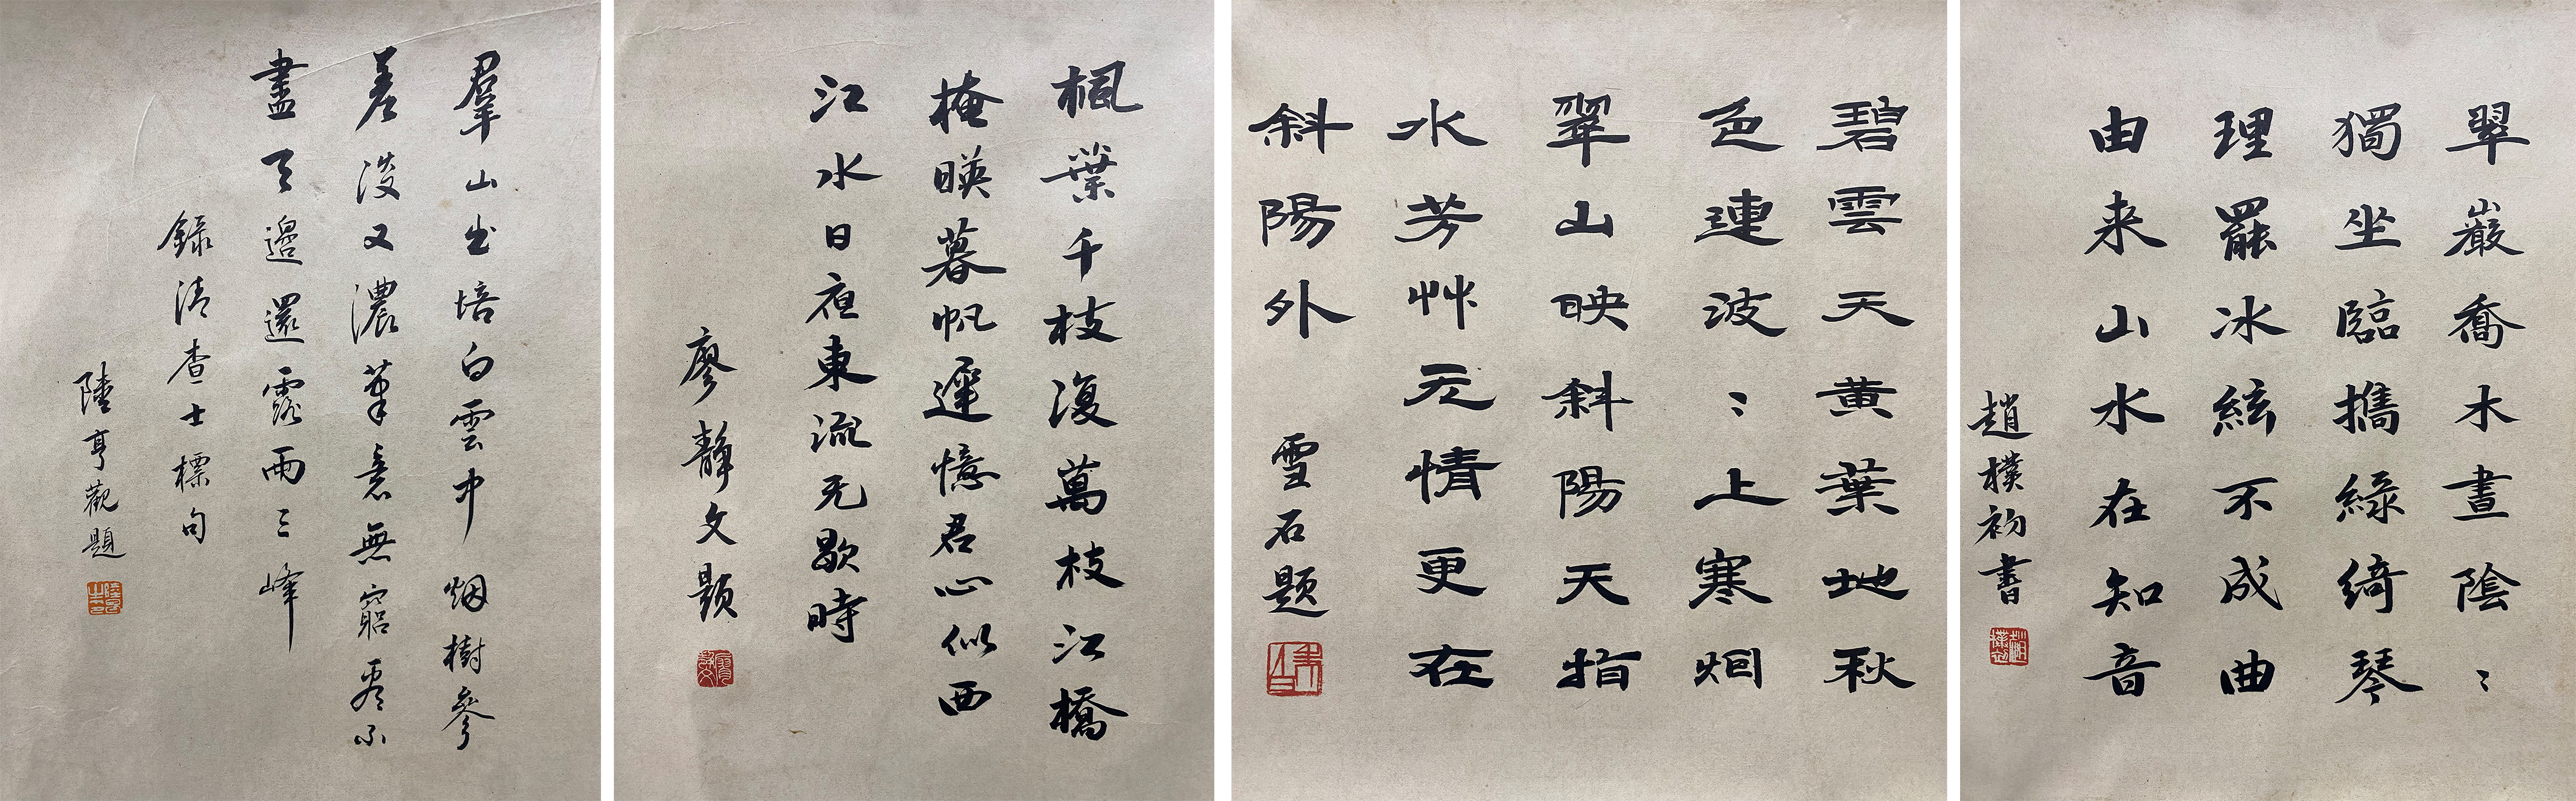 翠巖喬木晝陰〻
獨坐臨攜綠綺琴
理罷冰絃不成曲
由来山水在知音
趙樸初書
趙樸初
碧雲天黄葉地秋
色連波〻上寒烟
翠山映斜陽天指
水芳艸无情更在
斜陽外 雪石题
楓葉千枝復萬枝江橋
掩暎暮帆遲憶君心似西
江水日夜東流无歇時
廖靜文题
羣山出培白雲中 烟樹參
差淡又濃筆意無窮看不
盡天邊還露兩三峰
錄清查士標句
陸亨觀題